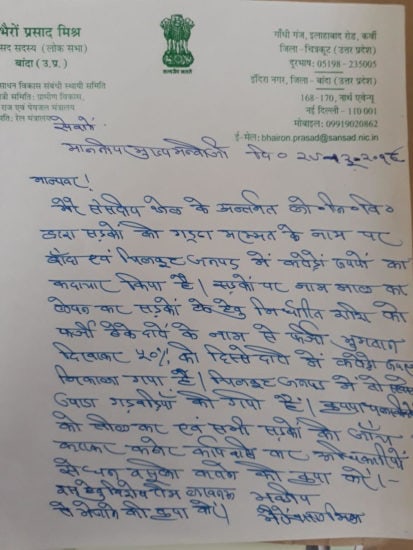 भैरों प्रसाद मिश्र
सद सदस्य (लोक सभा)
बांदा (उ.प्र.)
साधन विकास संबंधी स्थायी समिति
समिति: ग्रामीण विकास,
राज एवं पेयजल मंत्रालय
रेल मंत्रालय
सत्यमेव जयते
गाँधी गंज, इलाहाबाद रोड, कर्वी
जिला-चित्रकूट (उत्तर प्रदेश)
दूरभाष: 05198-235005
इंदिरा नगर, जिला - बांदा (उत्तर प्रदेश)
168-170, नार्थ एवेन्यू
नई दिल्ली -110 001
मोबाइल: 09919020862
ई-मेल: bhairon.prasad@sansad.nic.in
सेवा में,
माननीय मुख्यमन्त्री जी दि०
मान्यवर!
मेरे संसदीय क्षेत्र के अन्तर्गत लो०नि०वि०
द्वारा सड़कों की गड्ढा मरम्मत के नाम पर
बाँदा एवं चित्रकूट जनपद में करोड़ों रुपयों का
किया है। सड़कों पर नाम मात्र का
लेपन कर सड़कों के हेतु निर्धारित राशि को
फर्जी ठेकेदारों के नाम से फर्जी भुगतान
दिखाकर ५०% की हिस्सेदारी में करोड़ों रुपया
निकाला गया है। चित्रकूट जनपद में तो
ज्यादा गड़बड़ियाँ की गयी हैं। कृपया
को एवं सभी सड़कों की जाँच
कराकर कठोर कार्यवाही कर अधिकारियों
से धन वसूली कराने की कृपा करें।
हेतु विशेष टीम लखनऊ भवदीय
से भेजने की कृपा करें। भैरों प्रसाद मिश्र